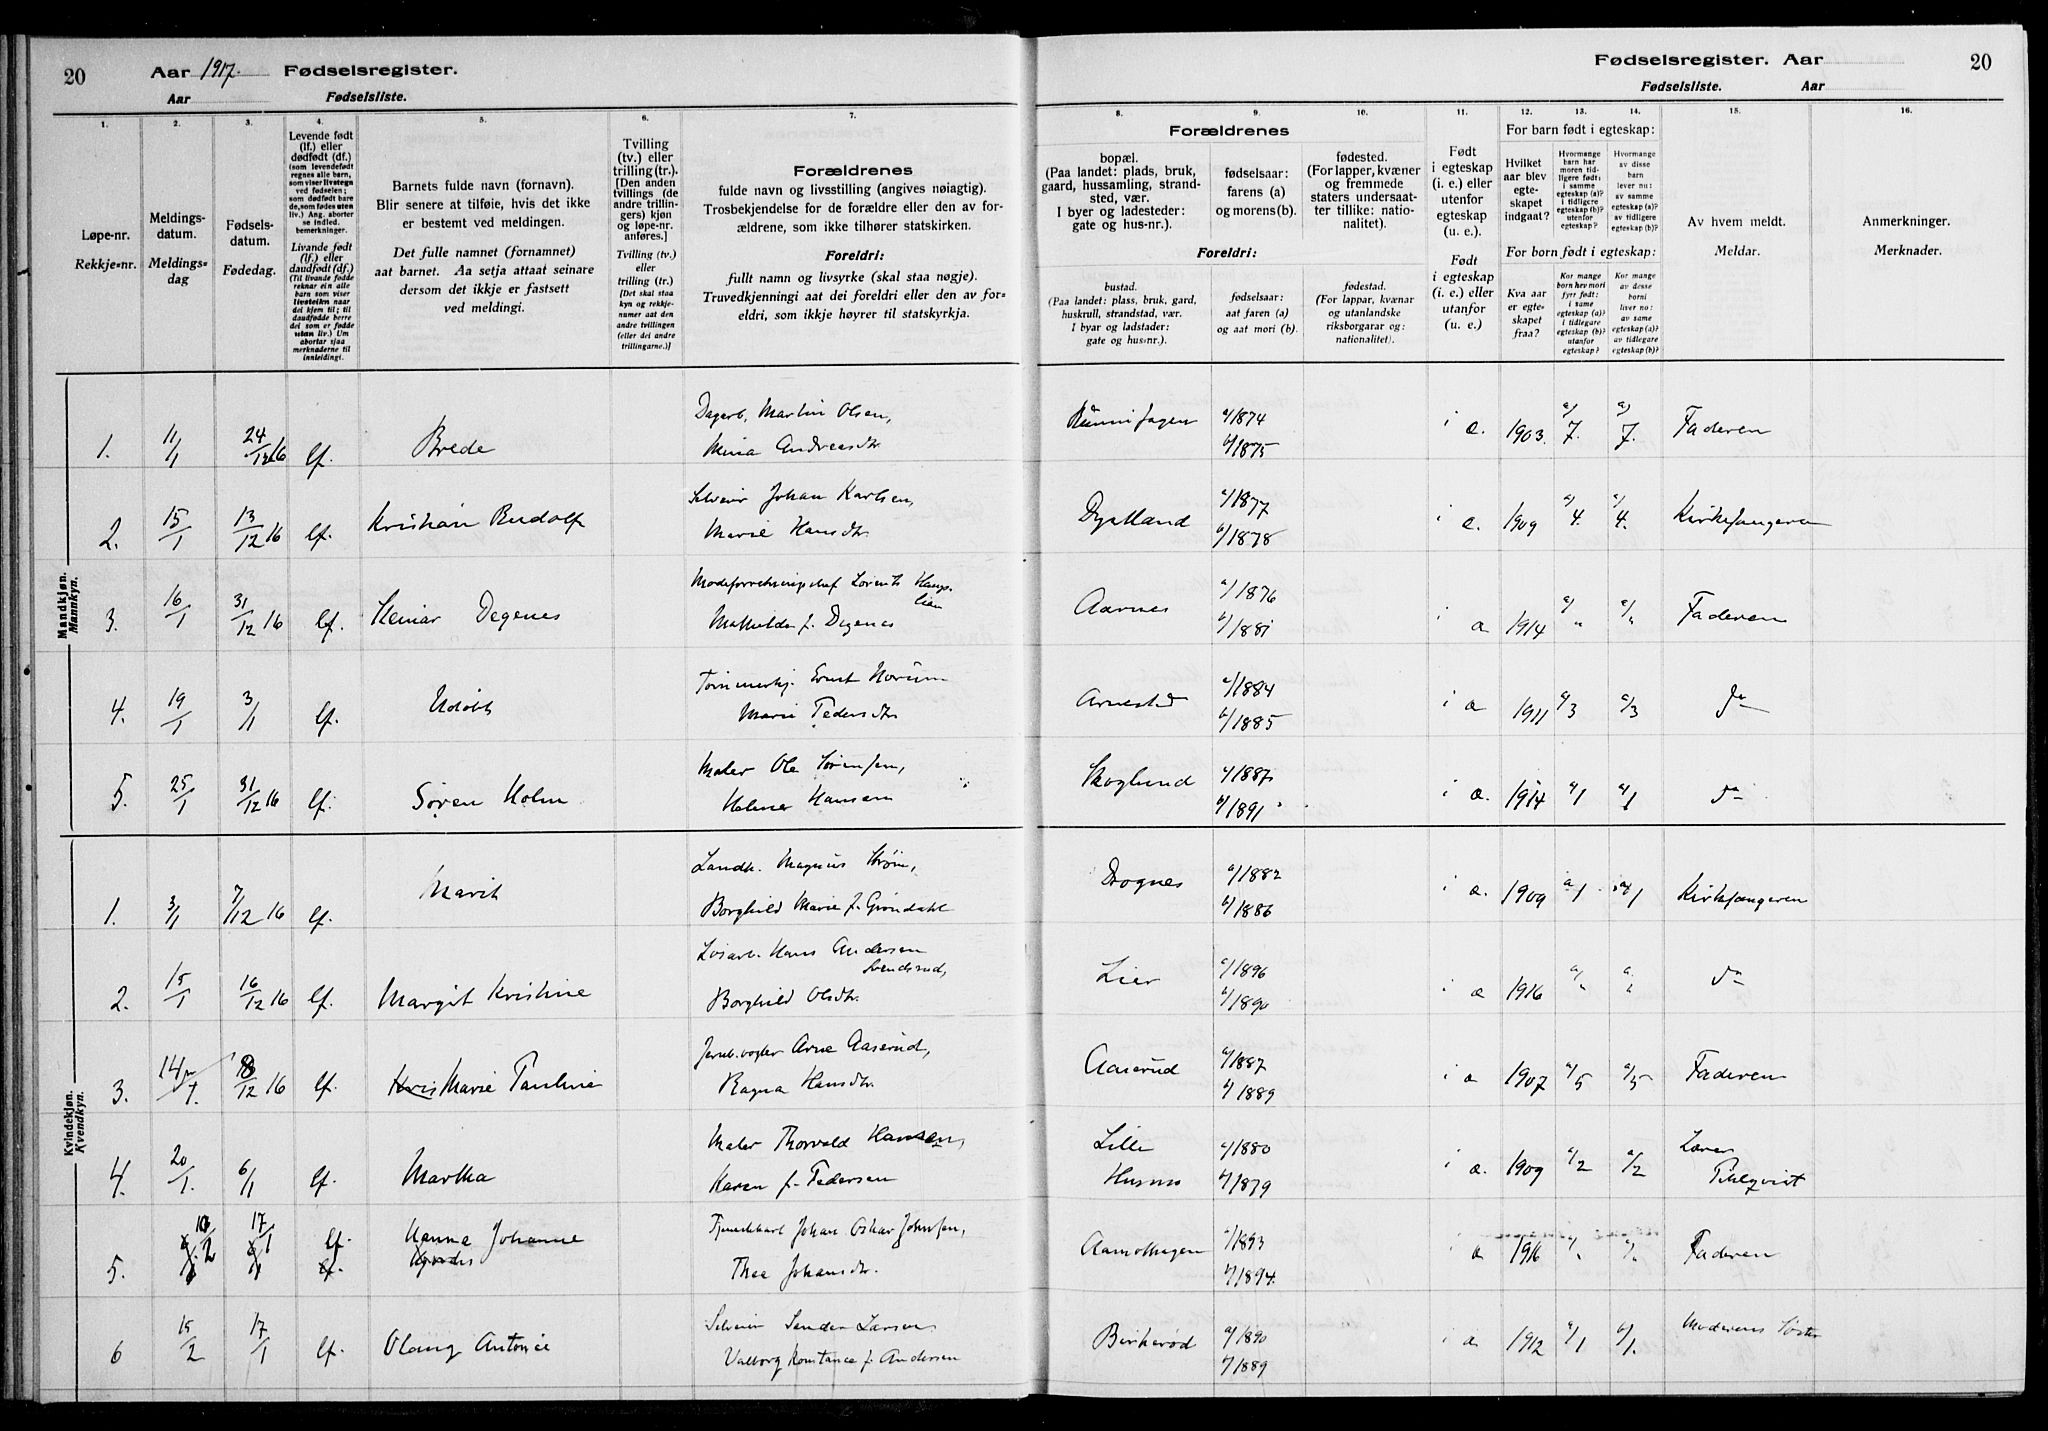 20 Aar 1917. Fødselsregister.
Aar Fødselsliste.
Fødselsregister. Aar 20
Fødselsliste. Aar
1. 2. 3. 4. 5. 6. 7. 8. 9. 10. 11. 12. 13. 14. 15. 16.
Løpe-nr.
Rekkje=nr.
Meldings-
datum.
Meldings=
dag
Fødsels-
datum.
Fødedag.
Levende født
(lf.) eller
dødfødt (df.)
(som levendefødt
regnes alle barn,
som viser livstegn
ved fødselen;
som dødfødt bare
de, som fødes uten
liv.) Ang. aborter
se indled.
bemerkninger.
Livande født
(lf.) eller
daudfødt (df.)
(Til livande fødde
reknar ein alle
barn som viser
livsteikn naar
dei kjem til; til
daudfødde berre
dei som er fødde
utan liv.) Um
abortar sjaa
merknaderne til
innleidingi.
Barnets fulde navn (fornavn).
Blir senere at tilføie, hvis det ikke
er bestemt ved meldingen.
Det fulle namnet (fornamnet)
aat barnet. Aa setja attaat seinare
dersom det ikkje er fastsett
ved meldingi.
Tvilling
(tv.) eller
trilling (tr.).
[Den anden
tvillings (de
andre trillin-
gers) kjøn
og løpe-nr.
anføres.]
Tvilling (tv.)
eller
trilling (tr.)
[Det skal staa
kyn og rekkje-
numer aat den
andre tvillingen
(eller dei andre
trillingarne.)]
Forældrenes
fulde navn og livsstilling (angives nøiagtig).
Trosbekjendelse for de forældre eller den av for-
ældrene, som ikke tilhører statskirken.
Foreldri:
fullt namn og livsyrke (skal staa nøgje).
Truvedkjenningi aat dei foreldri eller den av for=
eldri, som ikkje høyrer til statskyrkja.
Forældrenes
bopæl.
(Paa landet: plads, bruk,
gaard, hussamling, strand-
sted, vær.
I byer og ladesteder:
gate og hus-nr.).
fødselsaar:
farens (a)
og morens (b).
fødested.
(For lapper, kvæner
og fremmede
staters undersaat-
ter tillike: natio-
nalitet).
Foreldri:
bustad.
(Paa landet: plass, bruk, gard,
huskrull, strandstad, vær.
I byar og ladstader:
gate og hus=nr.).
fødselsaar:
aat faren (a)
og aat mori (b).
fødestad.
(For lappar, kvænar
og utanlandske
riksborgarar og:
nationalitet).
Født
i egteskap
(i. e.) eller
utenfor
egteskap
(u. e.)
Født
i egteskap
(i. e.) eller
utanfor
(u. e.)
For barn født i egteskap:
Hvilket
aar blev
egte-
skapet
indgaat?
Hvormange
barn har
moren tid-
ligere født:
i samme
egteskap (a)?
i tidligere
egteskap (b)?
utenfor
egteskap?
Hvormange
av disse
barn
lever nu:
av samme
egteskap (a)?
av tidligere
egteskap (b)?
For born født i egteskap:
Kva aar
er egte-
skapet
fraa?
Kor mange
born hev mori
fyrr født:
i same
egteskap (a)?
i tidlegare
egteskap (b)?
utanfor
egteskap?
Kor mange
av desse
borni
liver no:
av same
egteskap (a)?
av tidlegare
egteskap (b)?
Av hvem meldt.
Meldar.
Anmerkninger.
Merknader.
Mandkjøn.
Mannkyn.
1. 11/1 24/12 16 lf. Brede Dagarb. Martin Olsen, a/1874 i e. 1903. a/7. a/7. Faderen
Mina Andreasdtr. b/1875
2. 15/1 13/12 16 lf. Kristian Rudolf Selveier Johan Karlsen, Dyelland a/1877 i e. 1909 a/4. a/4. Kirkesangeren
Marie Hansdtr. b/1878
3. 16/1 31/12 16 lf. Heinar Degenes Lorentz Haugs-
lien Aarnes a/1876 i e 1914 a/" a/" Faderen
Mathilde f. Degenes b/1881
4. 19/1 3/1 lf. Tømmerhj. Ernst Horum Arnestad a/1884 i e 1911 a/3 a/3 do
Marie Pedersdtr b/1885
5. 25/1 31/12 16 lf. Søren Holm Maler Ole Sørensen, Skoglund a/1887 i e. 1914 a/1 a/1 do
Helene Hansen b/1891
Kvindekjøn.
Kvendkyn.
1. 3/1 7/12 16 lf. Marit Landh. Magnus Strøm, Drognes a/1882 i e. 1909 a/1 a/1 Kirkesangeren
Borghild Marie f. Grøndahl b/1886
2. 15/1 16/12 16 lf. Margit Kristine Løsarb. Hans Andersen
Svendsrud, Lier a/1896 i e 1916 a/" a/" do
Borghild Olsdtr. b/1890
3. 14/1. 18/12 16 lf. Kris Marie Pauline Arne Aaserud, Aaserud a/1887 i e 1907 a/5 a/5 Faderen
Ragna Hansdtr. b/1889
4. 20/1. 6/1 lf. Martha Maler Thorvald Hansen, Lille a/1880 i e. 1909 a/2 a/2 Lærer
Karen f. Pedersen Husmo b/1879 Pihlqvist
5. 10/2 17/1 lf. Hanna Johanne Johan Oskar Johnsen, Aamothagen a/1893 i e 1916 a/" a/" Faderen
Thea Johansdtr. b/1894.
6 15/2 17/1 lf. Olaug Antonie Selveier Sander Larsen Birkerød a/1890 i e 1912 a/1 b/1. Moderens Søster
Valborg Konstance f. Andersen b/1889